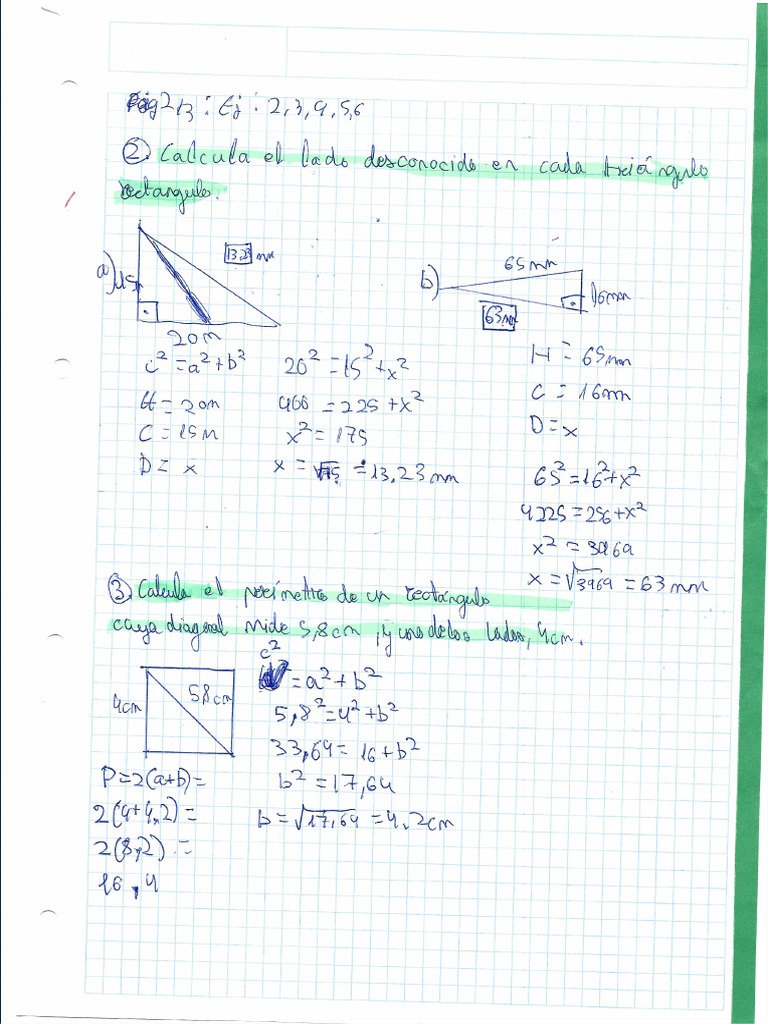 Pág 213 : Ej : 2, 3, 4, 5, 6
② Calcula el lado desconocido en cada triángulo
rectangulo.
a) 15m
13,23 mm
20m
b) 65mm
16mm
63mm
c² = a² + b²
H = 20m
C = 15m
D = x
20² = 15² + x²
400 = 225 + x²
x² = 175
x = √175 = 13,23 mm
H = 65mm
C = 16mm
D = x
65² = 16² + x²
4225 = 256 + x²
x² = 3969
x = √3969 = 63 mm
③ Calcula el perímetro de un rectángulo
cuya diagonal mide 5,8cm, y uno de los lados, 4cm.
4cm
5,8cm
c² = a² + b²
5,8² = 4² + b²
33,64 = 16 + b²
b² = 17,64
b = √17,64 = 4,2cm
P = 2(a+b) =
2(4+4,2) =
2(8,2) =
16,4